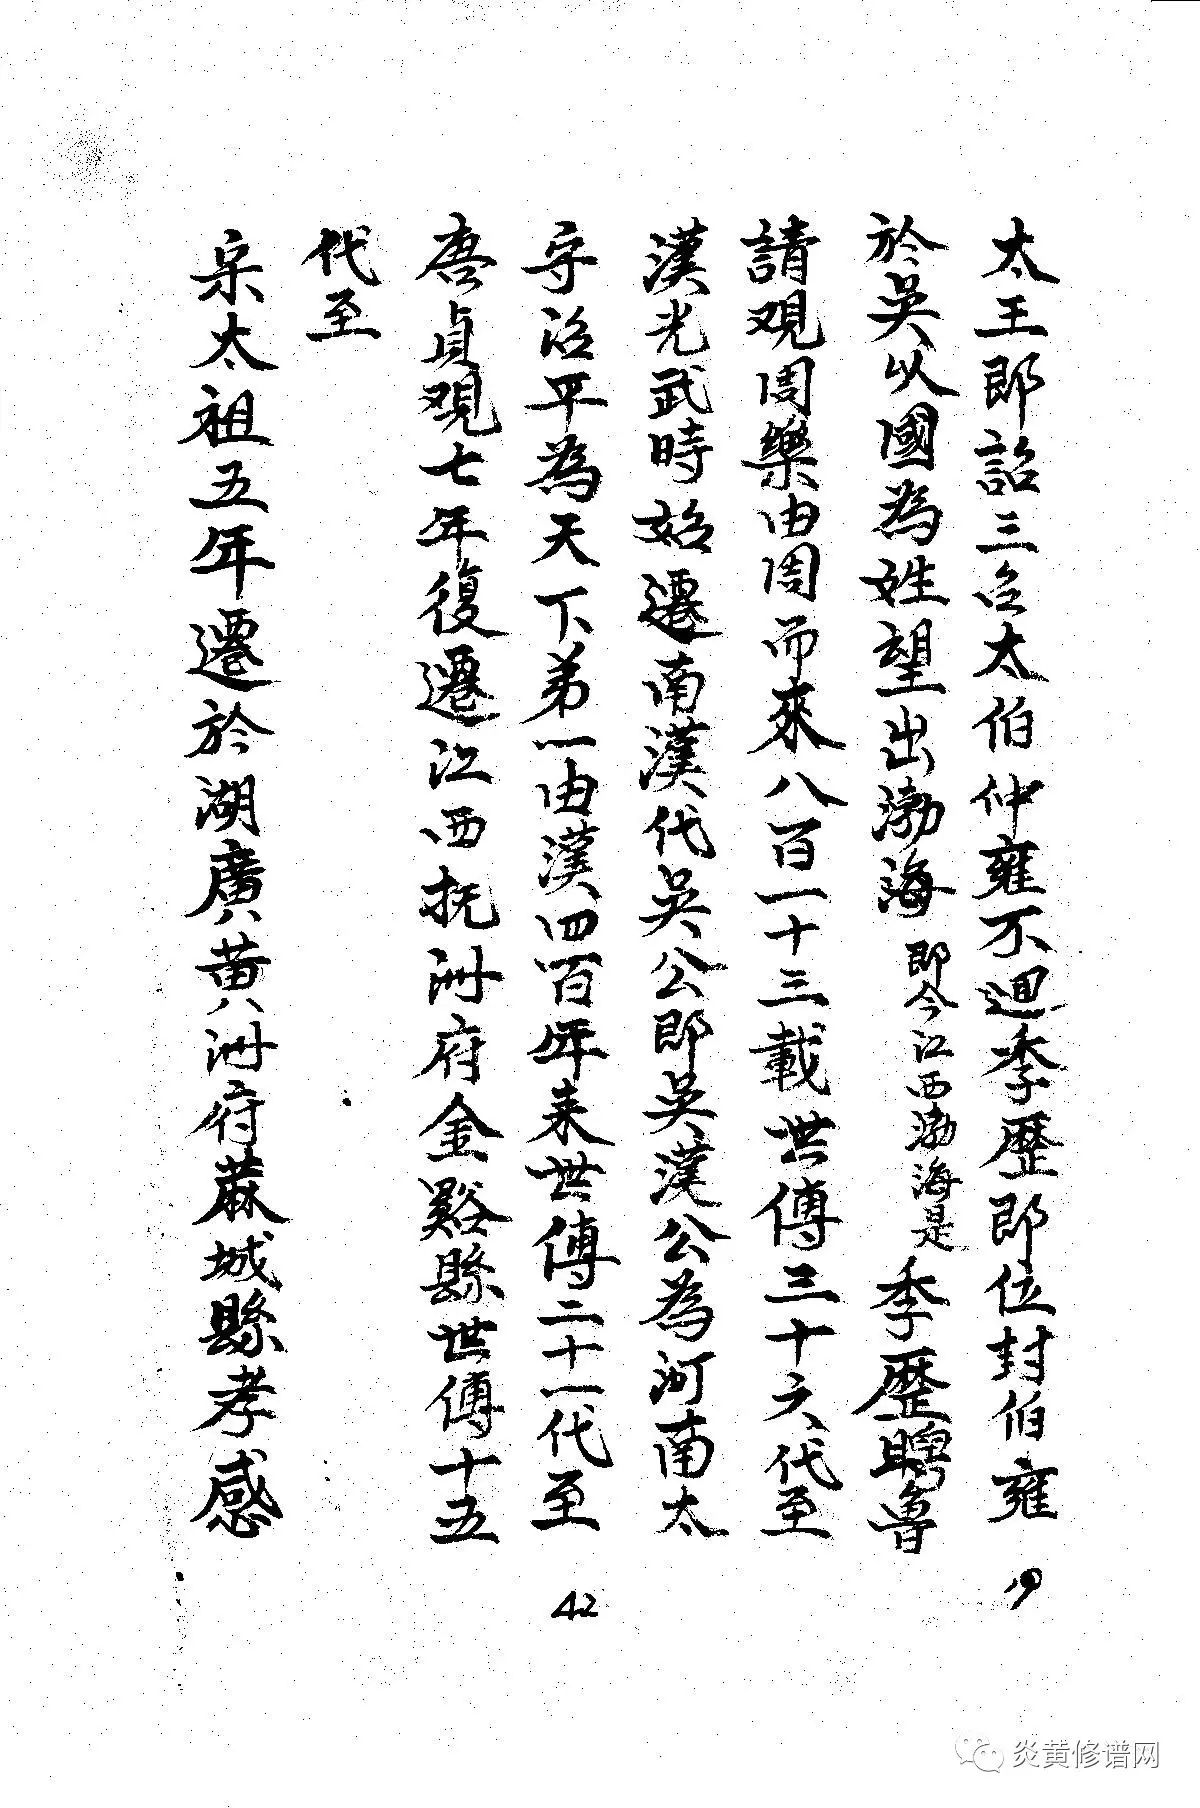 太王郎詔三召太伯仲雍不迴季歷即位封伯雍
於吳以國為姓望出渤海即今江西渤海是季歷聘魯
請观周樂由周而來八百一十三載世傳三十六代至
漢光武時始遷南漢代吳公郎吳漢公為河南太
守治平為天下弟一由漢四百年来世傳二十一代至
唐貞观七年復遷江西抚洲府金谿縣世傳十五
代至
宋太祖五年遷於湖廣黄洲府蔴城縣孝感
42
炎黄修谱网